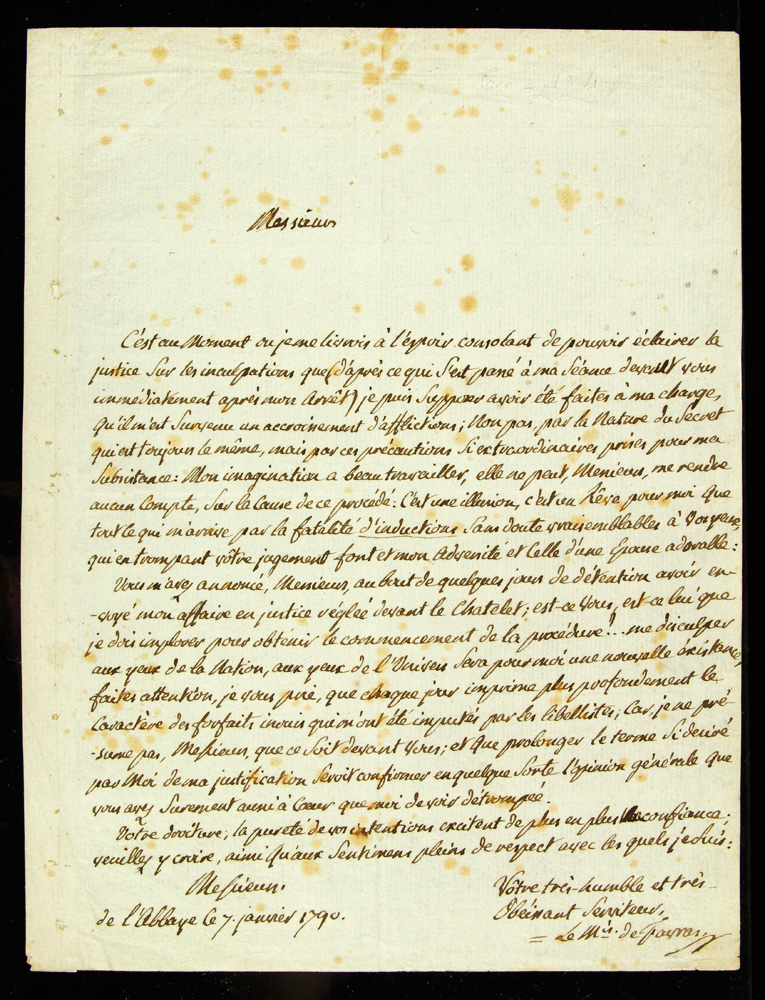 Messieurs
C'est au Moment ou je me livrois à l'espoir consolant de pouvoir éclairer la
justice sur les inculpations que (d'après ce qui s'est passé à ma Séance devant vous
immédiatement après mon Arrêt) je puis supposer avoir été faites à ma charge,
qu'il m'est Survenu un accroissement d'afflictions; Non pas, par la Nature du Secret
qui est toujours le même, mais par ces précautions si extraordinaires prises pour ma
Subsistance: Mon imagination a beau travailler, elle ne peut, Messieurs, me rendre
aucun Compte, Sur la Cause de ce procédé: C'est une illusion, c'est un Rêve pour moi que
tout ce qui m'arrive par la fatalité d'inductions Sans doute vraisemblables à vos yeux,
qui en trompant vôtre jugement font et mon Adversité et Celle d'une Epouse adorable:
Vous m'avez annoncé, Messieurs, au bout de quelques jours de détention avoir en-
-voyé mon affaire en justice réglée devant le Chatelet; est-ce Vous, est-ce lui que
je dois implorer pour obtenir le commencement de la procédure!... me disculper
aux yeux de la Nation, aux yeux de l'Univers Sera pour moi une nouvelle éxistance,
faites attention, je vous prie, que chaque jour imprime plus profondement le
Caractère des forfaits inouis qui m'ont été imputés par les libellistes; Car je ne pré-
-sume pas, Messieurs, que ce Soit devant Vous; et que prolonger le terme Si desiré
par Moi de ma justification Seroit confirmer en quelque Sorte l'opinion générale que
vous avez Surement aussi à Coeur que moi de voir détrompée.
Votre droiture, la pureté de vos intentions excitent de plus en plus Ma confiance;
veuillez y croire, ainsi qu'aux Sentimens pleins de respect avec les quels je suis:
Messieurs.
Vôtre très-humble et très-
Obéissant Serviteur,
de l'Abbaye Ce 7. janvier 1790.
= Le Mis. de favras